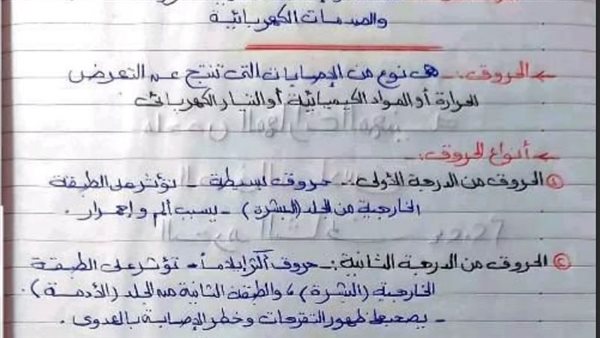 والصدمات الكهربائية
← الحروق:- هي نوع من الإصابات التي تنتج عن التعرض
الحرارة أو المواد الكيميائية أو التيار الكهربائي
← أنواع الحروق:-
① الحروق من الدرجة الأولى:- حروق بسيطة - تؤثر على الطبقة
الخارجية من الجلد (البشرة) - يسبب ألم و إحمرار.
② الحروق من الدرجة الثانية:- حروق أكثر إيلاماً - تؤثر على الطبقة
الخارجية (البشرة)، والطبقة الثانية من الجلد (الأدمة).
- يصحبها ظهور التقرحات وخطر الإصابة بالعدوى.